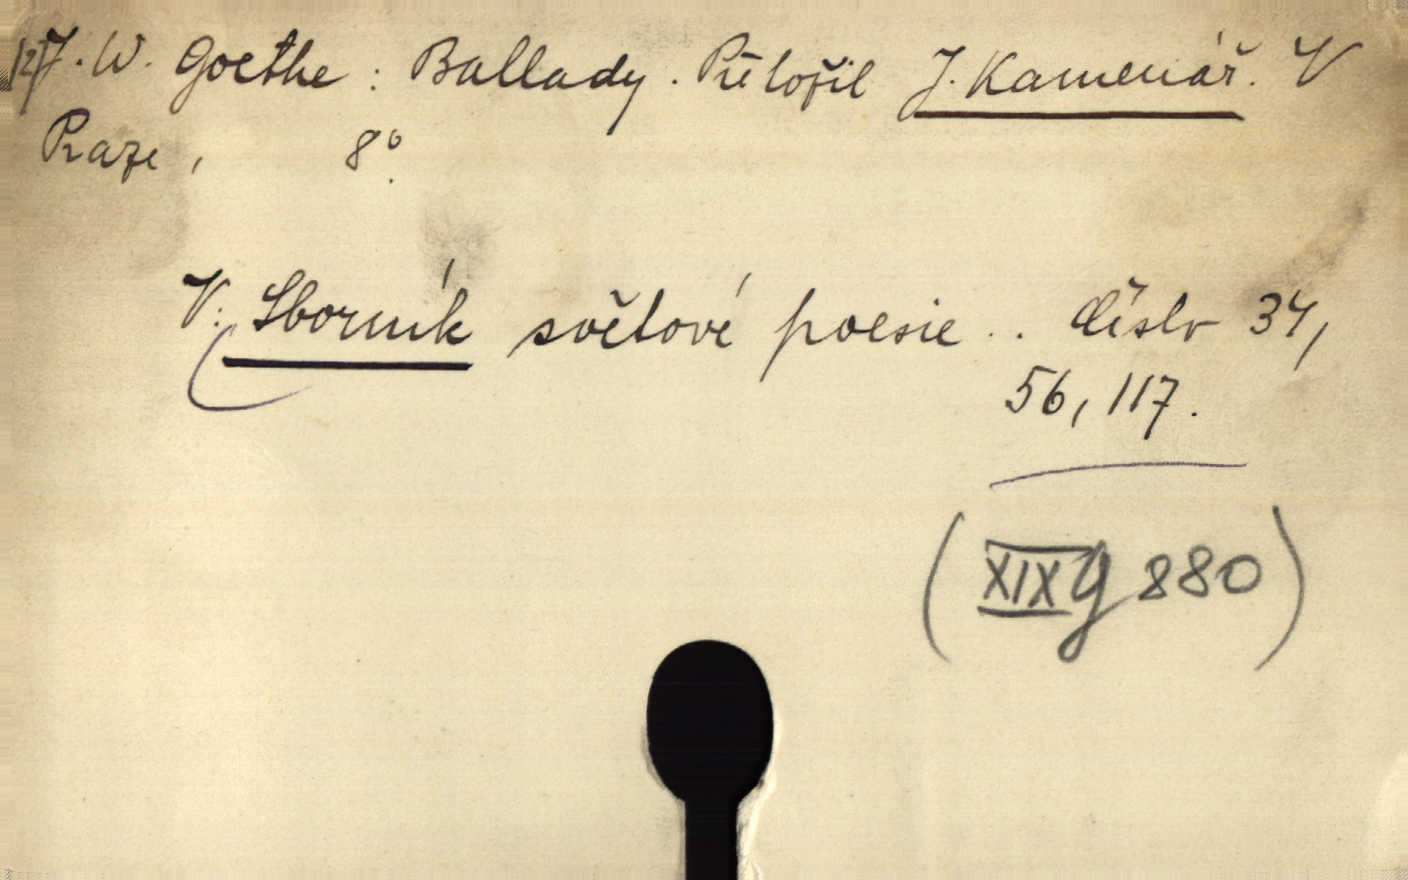 J. W. Goethe: Ballady. Přeložil J. Kamenář. V
Praze, 8°.
V: Sborník světové poesie .. číslo 34,
56, 117.
(XIX G 880)